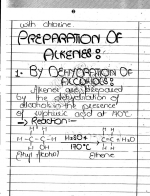 with chlorine
PREPARATION OF
ALKENES :
1. By DEHYDRATION OF
ALCOHOLS :
Alkenes are prepared
by the dehydration of
alcohols in the presence
of sulphuric acid at 170°C
→ Reaction -
H H H H
H-C-C-H H2SO4 C=C + H2O
H OH 170°C H H
(Ethyl Alcohol) Ethene